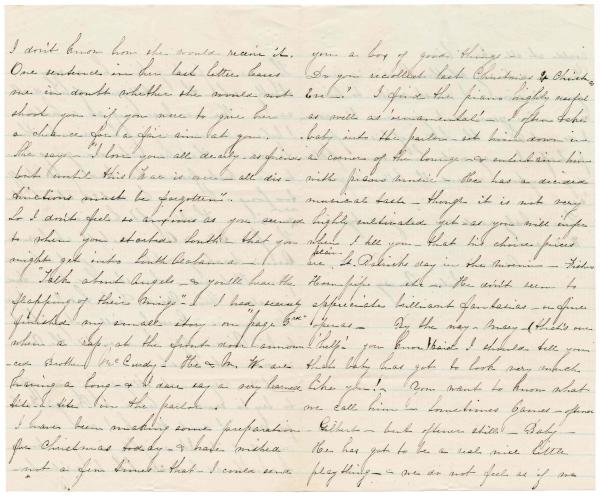 I don't know how she would receive it.
One sentence in her last letter leaves
me in doubt whether she would not
shoot you - if you were to give her
a chance for a fair aim at you.
She says - "I love you all dearly as friends
but until this War is over all dis-
tinctions must be forgotten".
So I don't feel so anxious as you seemed
to when you started South - that you
might get into South
"Talk about Angels - & you'll hear the
flapping of their Wings"! I had scarcely
finished my small story on "page 5th"
when a rap at the front door announ-
ced Brother McCurdy - He & Mr W. are
having a long - & I dare say a very learned
tête-à-tête in the parlor.
I have been making some preparation
for Christmas today - & have wished
- not a few times - that I could send
you a box of good things -
Do you recollect last Christmas & Christmas
Eve -? I find the piano highly useful
as well as 'ornamental' I often take
baby into the parlor - set him down in
a corner of the lounge - & entertain him
with piano music - He has a decided
musical taste - though it is not very
highly cultivated yet - as you will infer
when I tell you - that his choice pieces
are St. Patrick's day in the Mornin - Fishers
Hornpipe - etc - He don't seem to
appreciate brilliant fantasias - or fine
operas - By the way - Mary - (that's our
'help' you know) said I should tell you
that baby has got to look very much
like you!! You want to know what
we call him - Sometimes James - oftener
Gilbert - but oftener still - Baby -
He has got to be a real nice little
plaything - & we do not feel as if we